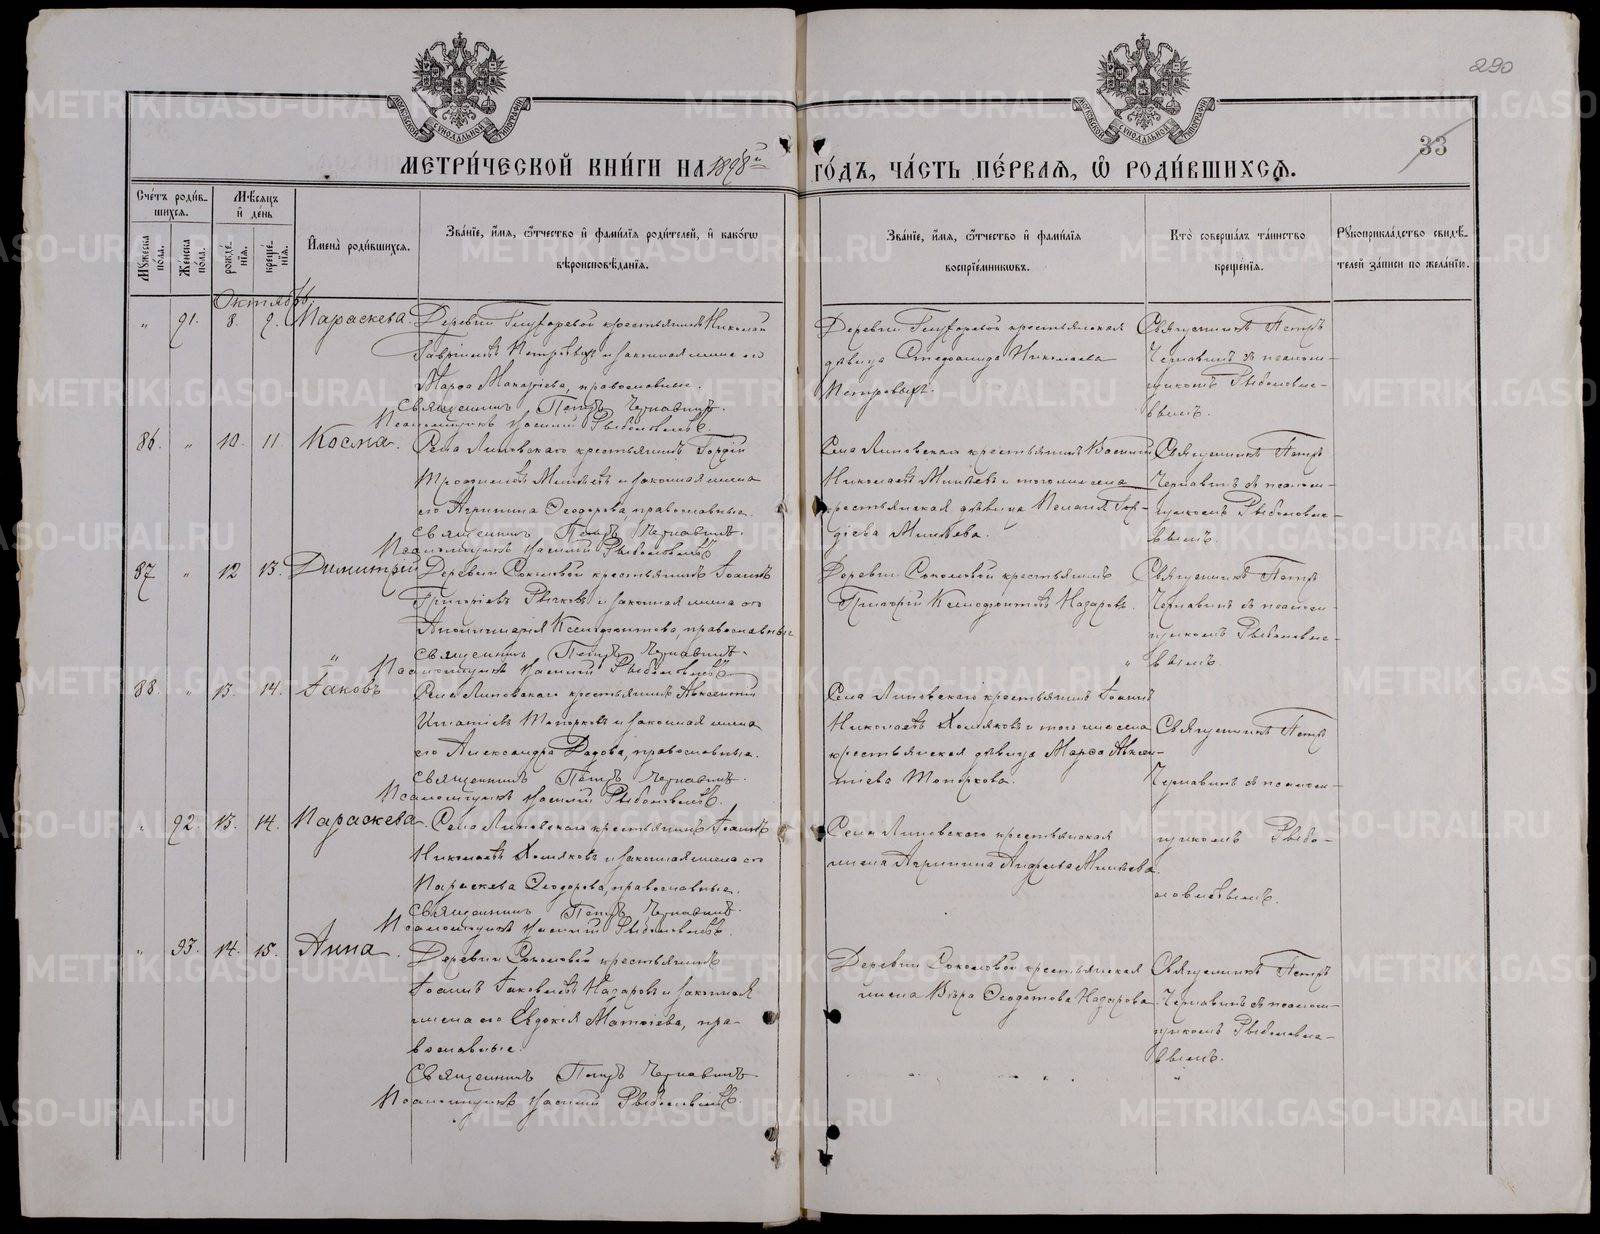 290
33
МЕТРИ́ЧЕСКОЙ КНИ́ГИ НА 1898й ГО́ДЪ, ЧА́СТЬ ПЕ́РВАЯ, Ѿ РОДИ́ВШИХСЯ.
Сче́тъ роди́в-
шихся.
Мѣ́сяцъ
и де́нь
Му́жеска
по́ла.
Же́нска
по́ла.
рожде́-
нія.
креще́-
нія.
И́мена роди́вшихся.
Зва́ніе, и́мя, ѻ́тчество и фами́лія роди́телей, и како́гѡ
вѣроисповѣ́данія.
Зва́ніе, и́мя, ѻ́тчество и фами́лія
воспріе́мниковъ.
Кто̀ соверша́лъ та́инство
креще́нія.
Рукоприкла́дство свидѣ́-
телей за́писи по жела́нію.
Октябрь.
" 91. 8. 9. Параскева.
Деревни крестьянинъ Николай
Гавріиловъ Петровыхъ и законная жена его
Марѳа Макаріева, православные.
Священникъ Петръ Чернавинъ.
Псаломщикъ Василій Рыболовлевъ.
Деревни крестьянская
дѣвица Стефанида Николаева
Петровыхъ.
Священникъ Петръ
Чернавинъ съ псалом-
щикомъ Рыболовле-
вымъ.
86. " 10. 11. Косма.
Села Липовскаго крестьянинъ Гордій
Минѣевъ и законная жена
его Агрипина Ѳеодорова, православные.
Священникъ Петръ Чернавинъ.
Псаломщикъ Василій Рыболовлевъ.
Села Липовскаго крестьянинъ Василій
Николаевъ Минѣевъ и того же села
крестьянская дѣвица Пелагія Гор-
діева Минѣева.
Священникъ Петръ
Чернавинъ съ псалом-
щикомъ Рыболовле-
вымъ.
87 " 12 13. Димитрій
Деревни Соколовой крестьянинъ Іоаннъ
Григоріевъ Рычковъ и законная жена его
Аполлинарія Ксенофонтова, православные.
Священникъ Петръ Чернавинъ.
Псаломщикъ Василій Рыболовлевъ
Деревни Соколовой крестьянинъ
Григорій Ксенофонтовъ Назаровъ.
Священникъ Петръ
Чернавинъ съ псалом-
щикомъ Рыболовле-
вымъ.
88. " 13. 14. Іаковъ
Села Липовскаго крестьянинъ Авксентій
Игнатіевъ Топорковъ и законная жена
его Александра, православные.
Священникъ Петръ Чернавинъ.
Псаломщикъ Василій Рыболовлевъ.
Села Липовскаго крестьянинъ Іоаннъ
Николаевъ Холмяковъ и того же села
крестьянская дѣвица Марѳа Авксен-
тіева Топоркова.
Священникъ Петръ
Чернавинъ съ псалом-
щикомъ Рыбо-
ловлевымъ.
" 92. 13. 14. Параскева
Села Липовскаго крестьянинъ Іоаннъ
Николаевъ Холмяковъ и законная жена его
Параскева Ѳеодорова, православные.
Священникъ Петръ Чернавинъ.
Псаломщикъ Василій Рыболовлевъ.
Села Липовскаго крестьянская
жена Агрипина Андреева Минѣева.
" 93. 14. 15. Анна.
Деревни Соколовой крестьянинъ
Іоаннъ Іаковлевъ Назаровъ и законная
жена его Евдокія Матѳіева, пра-
вославные.
Священникъ Петръ Чернавинъ
Псаломщикъ Василій Рыболовлевъ.
Деревни Соколовой крестьянская
жена Вѣра Ѳеодотова Назарова.
Священникъ Петръ
Чернавинъ съ псалом-
щикомъ Рыболовле-
вымъ.
METRIKI.GASO-URAL.RU